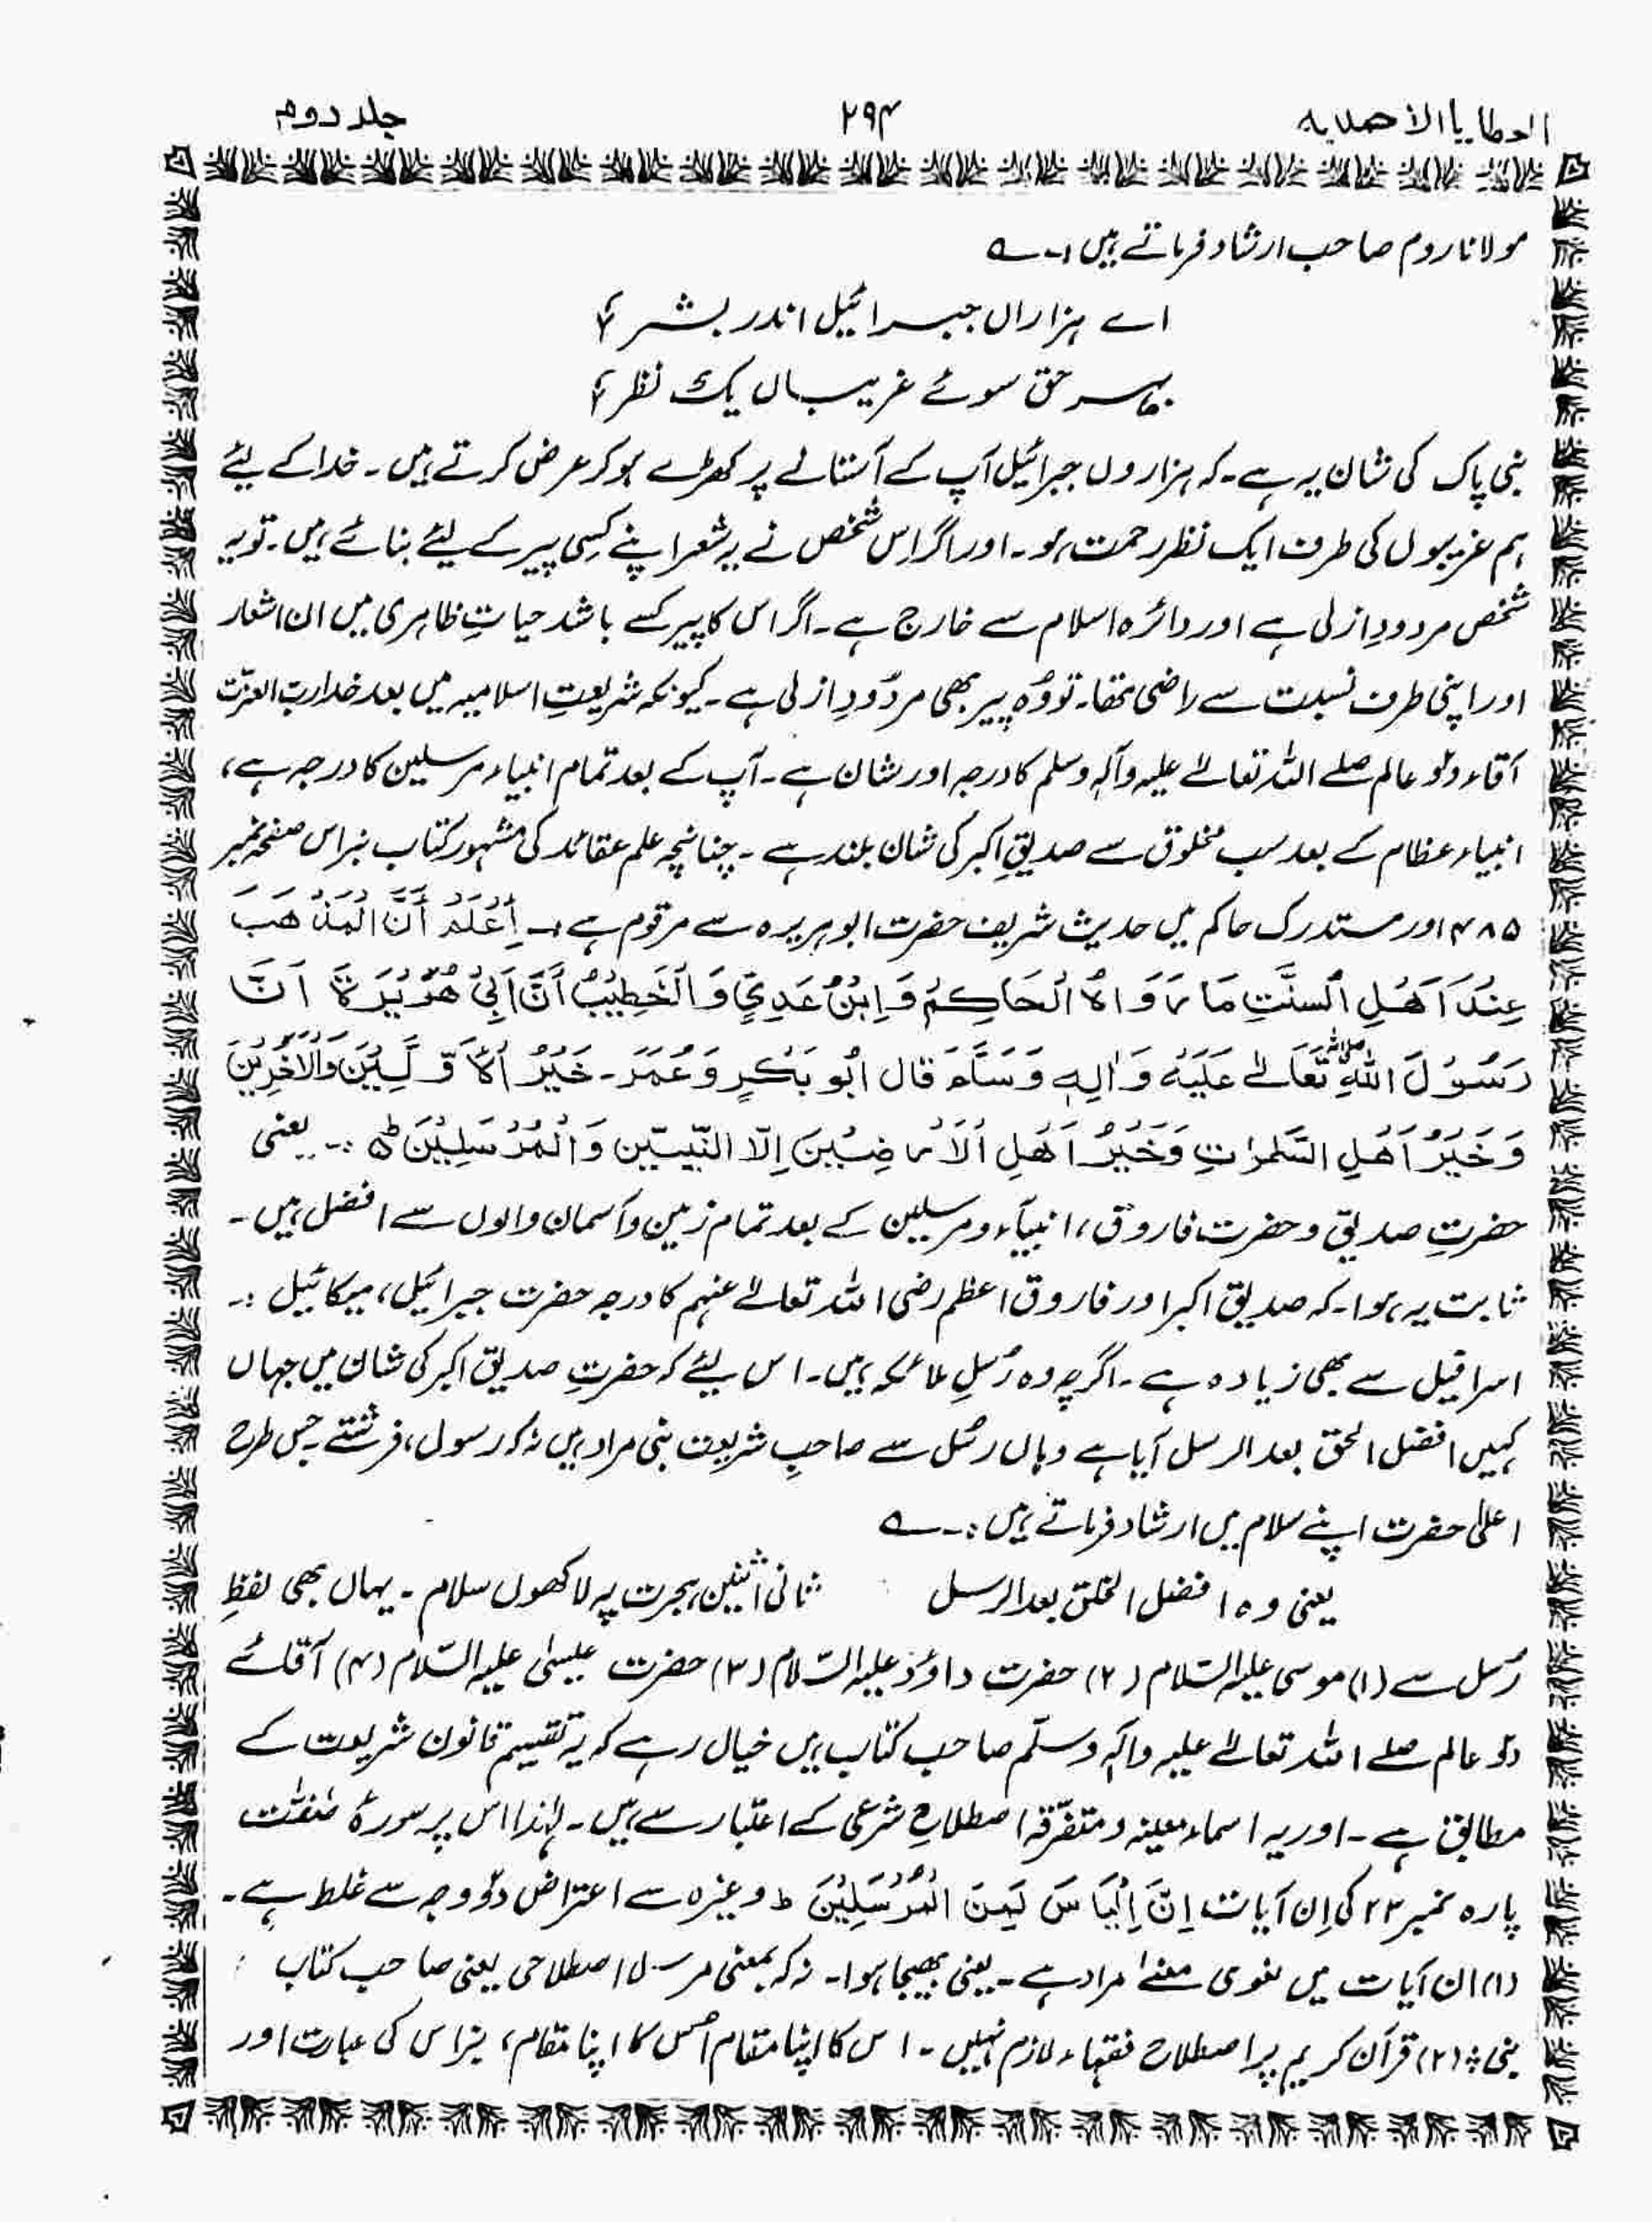 العطایا الاحمدیہ ۲۹۴ جلد دوم
مولانا روم صاحب ارشاد فرماتے ہیں :۔ ؎
اے ہزاراں جبرائیل اندر بشر ؛
بہر حق سوئے غریباں یک نظر ؛
نبی پاک کی شان یہ ہے۔ کہ ہزاروں جبرائیل آپ کے آستانے پر کھڑے ہو کر عرض کرتے ہیں۔ خدا کے لیئے
ہم غریبوں کی طرف ایک نظر رحمت ہو۔ اور اگر اس شخص نے یہ شعر اپنے کسی پیر کے لیئے بنائے ہیں۔ تو یہ
شخص مردودِ ازلی ہے اور دائرہ اسلام سے خارج ہے۔ اگر اس کا پیر کسے باشد حیاتِ ظاہری میں ان اشعار
اور اپنی طرف نسبت سے راضی تھا۔ تو وُہ پیر بھی مردُودِ ازلی ہے۔ کیونکہ شریعتِ اسلامیہ میں بعد خدا رب العزّت
آقاء دو عالم صلے اللہ تعالےٰ علیہ وآلہٖ وسلم کا درجہ اور شان ہے۔ آپ کے بعد تمام انبیاء مرسلین کا درجہ ہے،
انبیاء عظام کے بعد سب مخلوق سے صدیقِ اکبر کی شان بلند ہے ۔ چنانچہ علم عقائد کی مشہور کتاب نبراس صفحہ نمبر
۴۸۵ اور مستدرک حاکم میں حدیث شریف حضرت ابوہریرہ سے مرقوم ہے :۔ اِعْلَمْ اَنَّ الْمَذْهَبَ
عِنْدَ اَهْلِ السنَّتِ مَا رَوَاہُ الْحَاكِمُ وَ اِبْنُ عَدِيٍّ وَ الْخَطِيْبُ اَنَّ اَبِیْ هُرَيْرَةَ اَنَّ
رَسُوْلَ اللهِ صلی اللہ تَعَالےٰ عَلَيْهِ وَ اٰلِهٖ وَسَلَّمَ قَالَ اَبُو بَكْرٍ وَ عُمَرَ۔ خَيْرُ الْاَوَّلِيْنَ وَالْاٰخِرِيْنَ
وَ خَيْرُ اَهْلِ السَّمٰوٰتِ وَ خَيْرُ اَهْلِ الْاَرْضِيْنَ اِلَّا النَّبِيّٖن وَ الْمُرْسَلِيْنَ ط :۔ یعنی
حضرتِ صدیق و حضرت فاروق، انبیآء و مرسلین کے بعد تمام زمین و آسمان والوں سے افضل ہیں۔
ثابت یہ ہوا۔ کہ صدیق اکبر اور فاروق اعظم رضی اللہ تعالےٰ عنہم کا درجہ حضرت جبرائیل، میکائیل :۔
اسرافیل سے بھی زیادہ ہے۔ اگرچہ وہ رُسلِ ملائکہ ہیں۔ اس لیئے کہ حضرتِ صدیق اکبر کی شان میں جہاں
کہیں افضل الحق بعد الرسل آیا ہے وہاں رسُل سے صاحبِ شریعت نبی مراد ہیں نہ کہ رسول، فرشتے۔ جس طرح
اعلیٰ حضرت اپنے سلام میں ارشاد فرماتے ہیں :۔ ؎
یعنی وہ افضل الخلق بعد الرسل ثانی اثنین ہجرت پہ لاکھوں سلام ۔ یہاں بھی لفظِ
رُسل سے (۱) موسی علیہ السّلام (۲) حضرت داؤد علیہ السّلام (۳) حضرت عیسیٰ علیہ السّلام (۴) آقائے
دو عالم صلے اللہ تعالےٰ علیہ وآلہٖ وسلّم صاحب کتاب ہیں خیال رہے کہ یہ تقسیم قانون شریعت کے
مطابق ہے۔ اور یہ اسماء معینہ و متفرّقہ اصطلاحِ شرعی کے اعتبار سے ہیں۔ لہٰذا اس پر سورۂ صٰفّٰت
پارہ نمبر ۲۳ کی اِن آیات اِنَّ اِلْیَاسَ لَمِنَ الْمُرْسَلِيْنَ ط وغیرہ سے اعتراض دوّ وجہ سے غلط ہے۔
(۱) ان آیات میں لغوی معنےٰ مراد ہے۔ یعنی بھیجا ہوا۔ نہ کہ بمعنی مرسل اصطلاحی یعنی صاحب کتاب
نبی ؛ (۲) قرآن کریم پر اصطلاح فقہاء لازم نہیں۔ اس کا اپنا مقام اُس کا اپنا مقام، نبراس کی عبارت اور